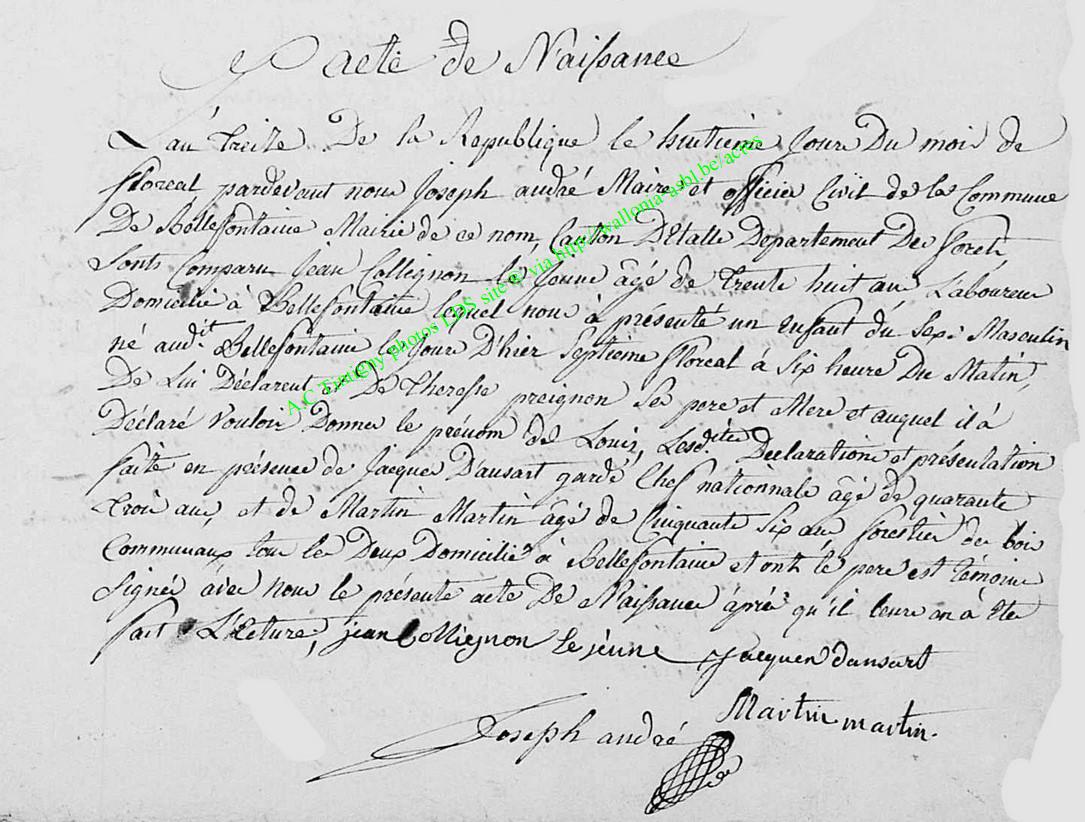 acte de Naissance
L'an treize De la Republique le huitieme Jour Du mois de
floreal pardevant nous Joseph andré Maire et officier Civil de la Commune
De Bellefontaine Mairie de ce nom, Canton D'Etalle Departement Des forets
Sont Comparu Jean Collignon le Jeune âgé de trente huit ans Laboureur
Domicilié à Bellefontaine lequel nous à présenté un Enfant du Sexe Masculin
né aud.it Bellefontaine le Jour D'hier Septieme floreal à Six heure Du Matin,
De Lui Déclarent et De Theresse preignon Ses pere et Mere et auquel il à
Déclaré Vouloir Donner le prénom de Louis, Lesd.ites Declaration et présentation
faite en présence de Jacque Dausart garde Chef nationnale âgé de quarante
trois ans, et de Martin Martin âgé de Cinquante Six ans forestier des bois
Communaux tous les Deux Domiciliés à Bellefontaine et ont le pere est témoins
Signée avec Nous le présente acte De Naissance après qu'il leure an à Eté
fait Lecture, jean Collignon le jeune Jacque Dansart
Martin martin.
Joseph andré
A.C Tintigny photos LDS site © via http://wallonia-asbl.be/actes